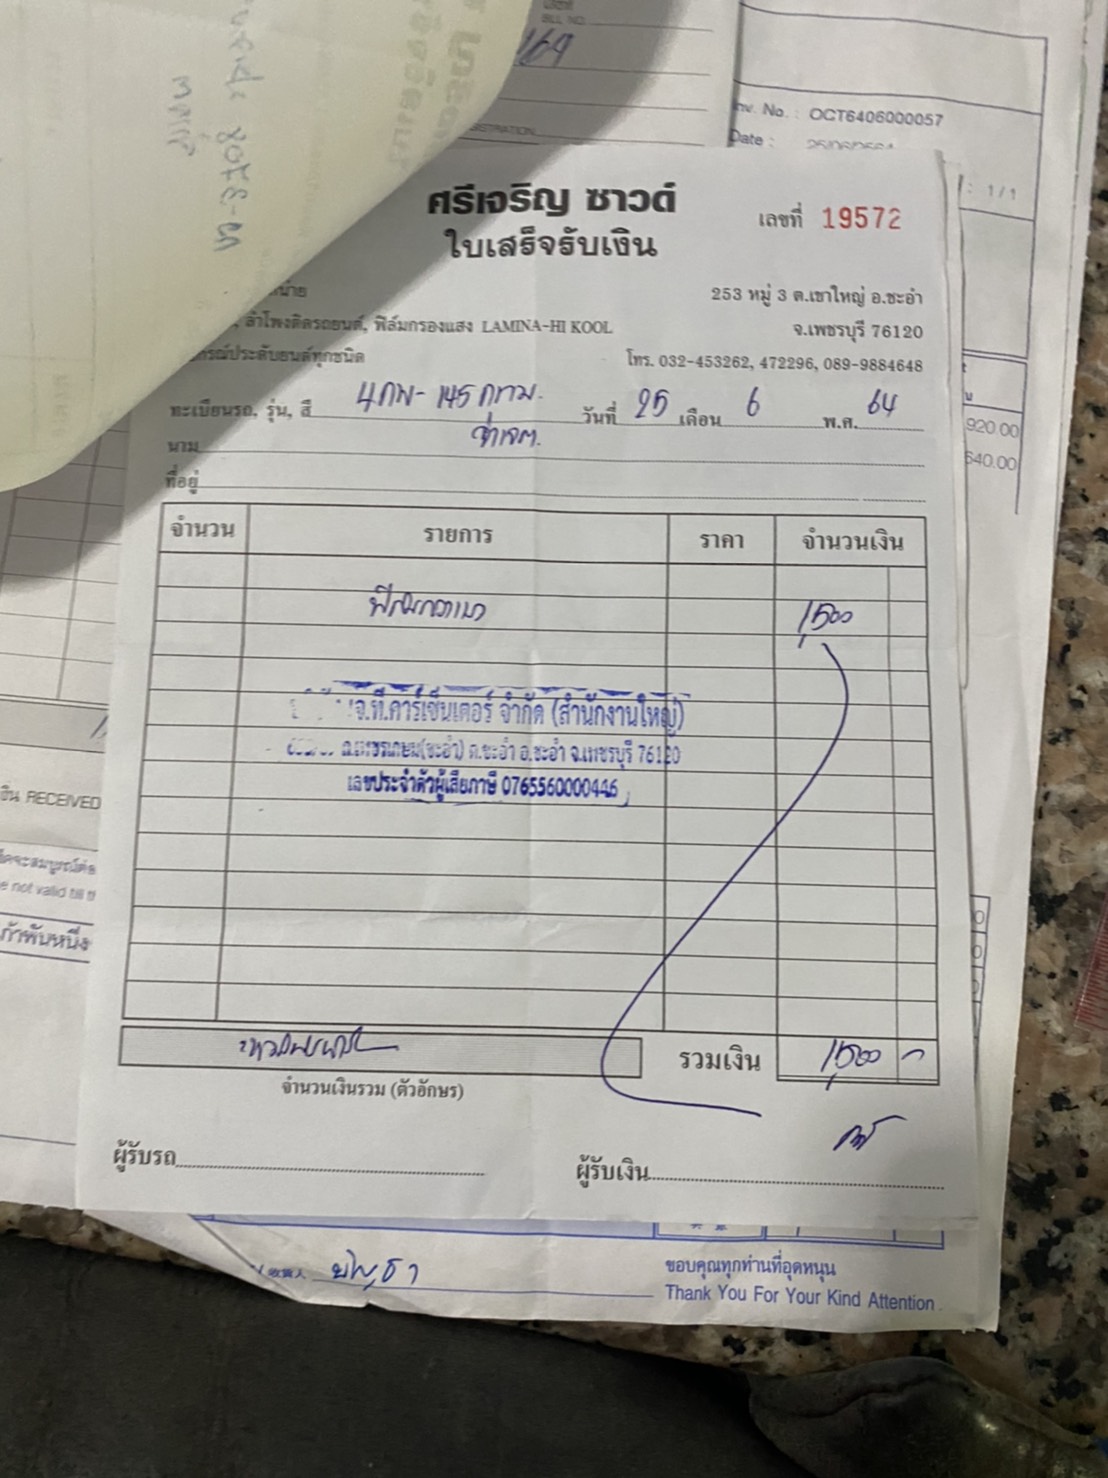 BILL NO.
169
ISTRATION
Inv. No. : OCT6406000057
Date :
: 1/1
920.00
540.00
ศรีเจริญ ซาวด์
เลขที่ 19572
ใบเสร็จรับเงิน
253 หมู่ 3 ต.เขาใหญ่ อ.ชะอำ
ลำโพงติดรถยนต์, ฟิล์มกรองแสง LAMINA-HI KOOL
จ.เพชรบุรี 76120
ประดับยนต์ทุกชนิด
โทร. 032-453262, 472296, 089-9884648
ทะเบียนรถ, รุ่น, สี 4กพ-145 กทม. วันที่ 25 เดือน 6 พ.ศ. 64
นาม
ที่อยู่
จำนวน รายการ ราคา จำนวนเงิน
1,500
จ.ที.คาร์เซ็นเตอร์ จำกัด (สำนักงานใหญ่)
ถ.เพชรเกษม(ชะอำ) ต.ชะอำ อ.ชะอำ จ.เพชรบุรี 76120
เลขประจำตัวผู้เสียภาษี 0765560000446
รวมเงิน 1,500 -
จำนวนเงินรวม (ตัวอักษร)
ผู้รับรถ
ผู้รับเงิน
เงิน RECEIVED
e not valid till
ก้าพันหนึ่ง
ขอบคุณทุกท่านที่อุดหนุน
Thank You For Your Kind Attention